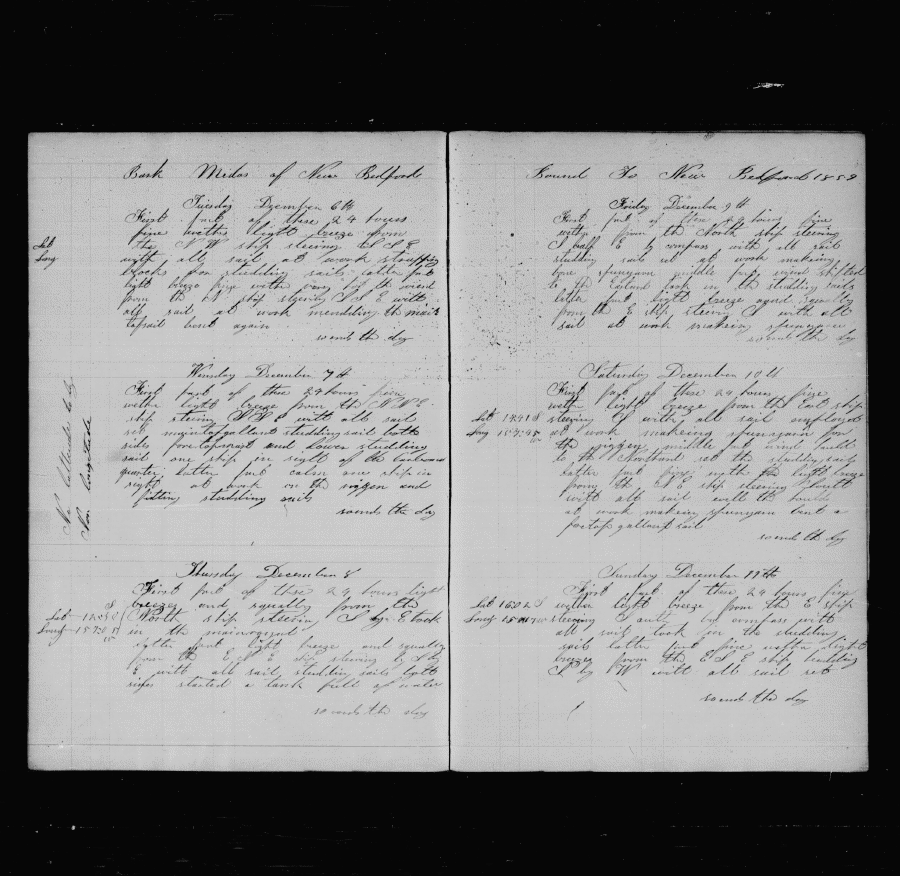 Bark Midas of New Bedford
Tuesday Dzember 6th
First part of these 24 hours
fine wether light breeze from
the N W ship steering S S E
with all sail at work strapping
blocks for studding sails latter part
light breeze fine wether the wind
from the N ship steering S S E with
all sail at work mendding the main
topsail bent again
so ends the day
Lat
Long
Wensday December 7th
First part of these 24 hours fine
wether light breeze from the N N E
ship steering with all sail
set maintopgalland studding sail both
sides foretopmast and lower studding
sail one ship in sight of the
quarter latter part calm one ship in
sight at work on the riggen and
fitting studding sails
so ends the day
No lattitude to day
Nor longitude
Thusday December 8
First part of these 24 hours light
breeze and squally from the
North ship steering S by E took
in the mainroyal
latter part light breeze and squally
from the E N E ship steering S by
E with all sail studding sails both
sides started a cask full of water
so ends the day
Lat
Long
Bound To New Bedford 1859
Friday December 9th
First part of these 24 hours fine
wether from the North ship steering
S half E by compass with all sail
studding sails set at work makeing
spunyarn middle part wind shifted
to the Eastard took in the studding sails
latter part light breeze and squally
from the E ship steering S with all
sail at work makeing spunyarn
so ends the day
Saturday December 10th
First part of these 24 hours fine
wether light breeze from the East ship
steering S with all sail employed
at work makeing spunyarn for
the riggen middle wind
to the Northard set the studding sails
latter part fine wether light breeze
from the N E ship steering South
with all sail
at work makeing spunyarn bent a
foretopgallant sail
so ends the day
Lat 14.41 S
Long
Sunday December 11th
First part of these 24 hours fine
wether light breeze from the E ship
steering S by compass with
all sail took in the studding
sails latter part fine wether light
breeze from the E S E ship heading
S by W with all sail set
so ends the day
Lat 16.02 S
Long